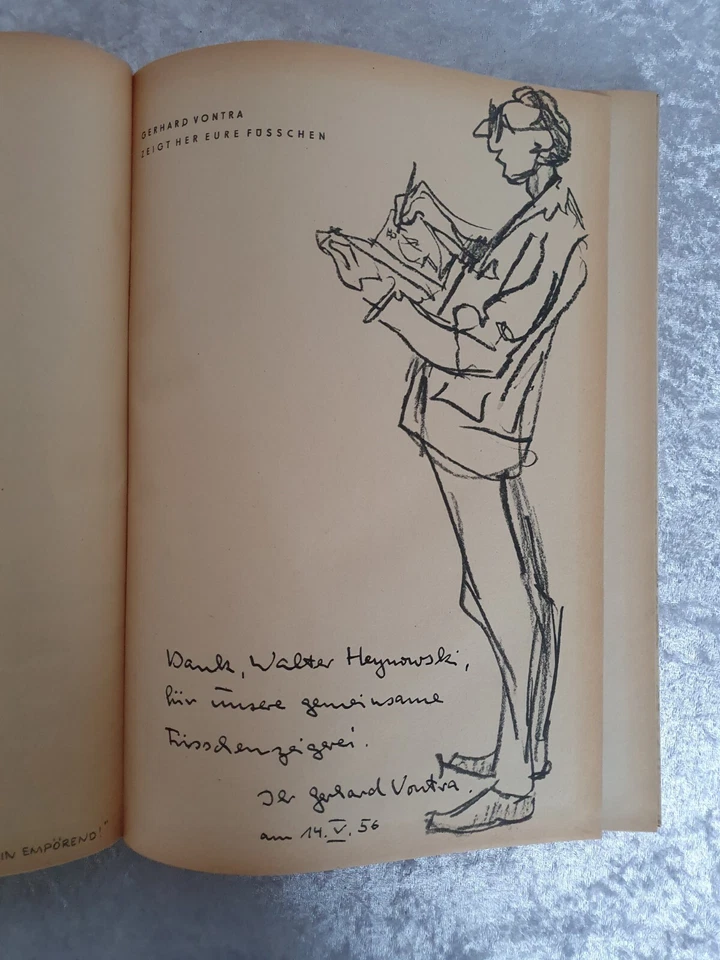 GERHARD VONTRA
ZEIGT HER EURE FÜSSCHEN
Dank, Walter Heynowski,
für unsere gemeinsame
Füsschenzeigerei.
Ihr Gerhard Vontra.
am 14.V.56
IN EMPÖREND!"